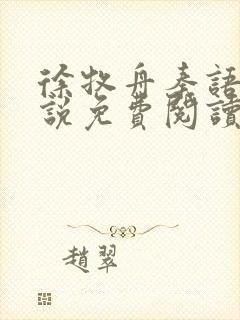 徐牧舟秦語
說免費閱讀
趙翠